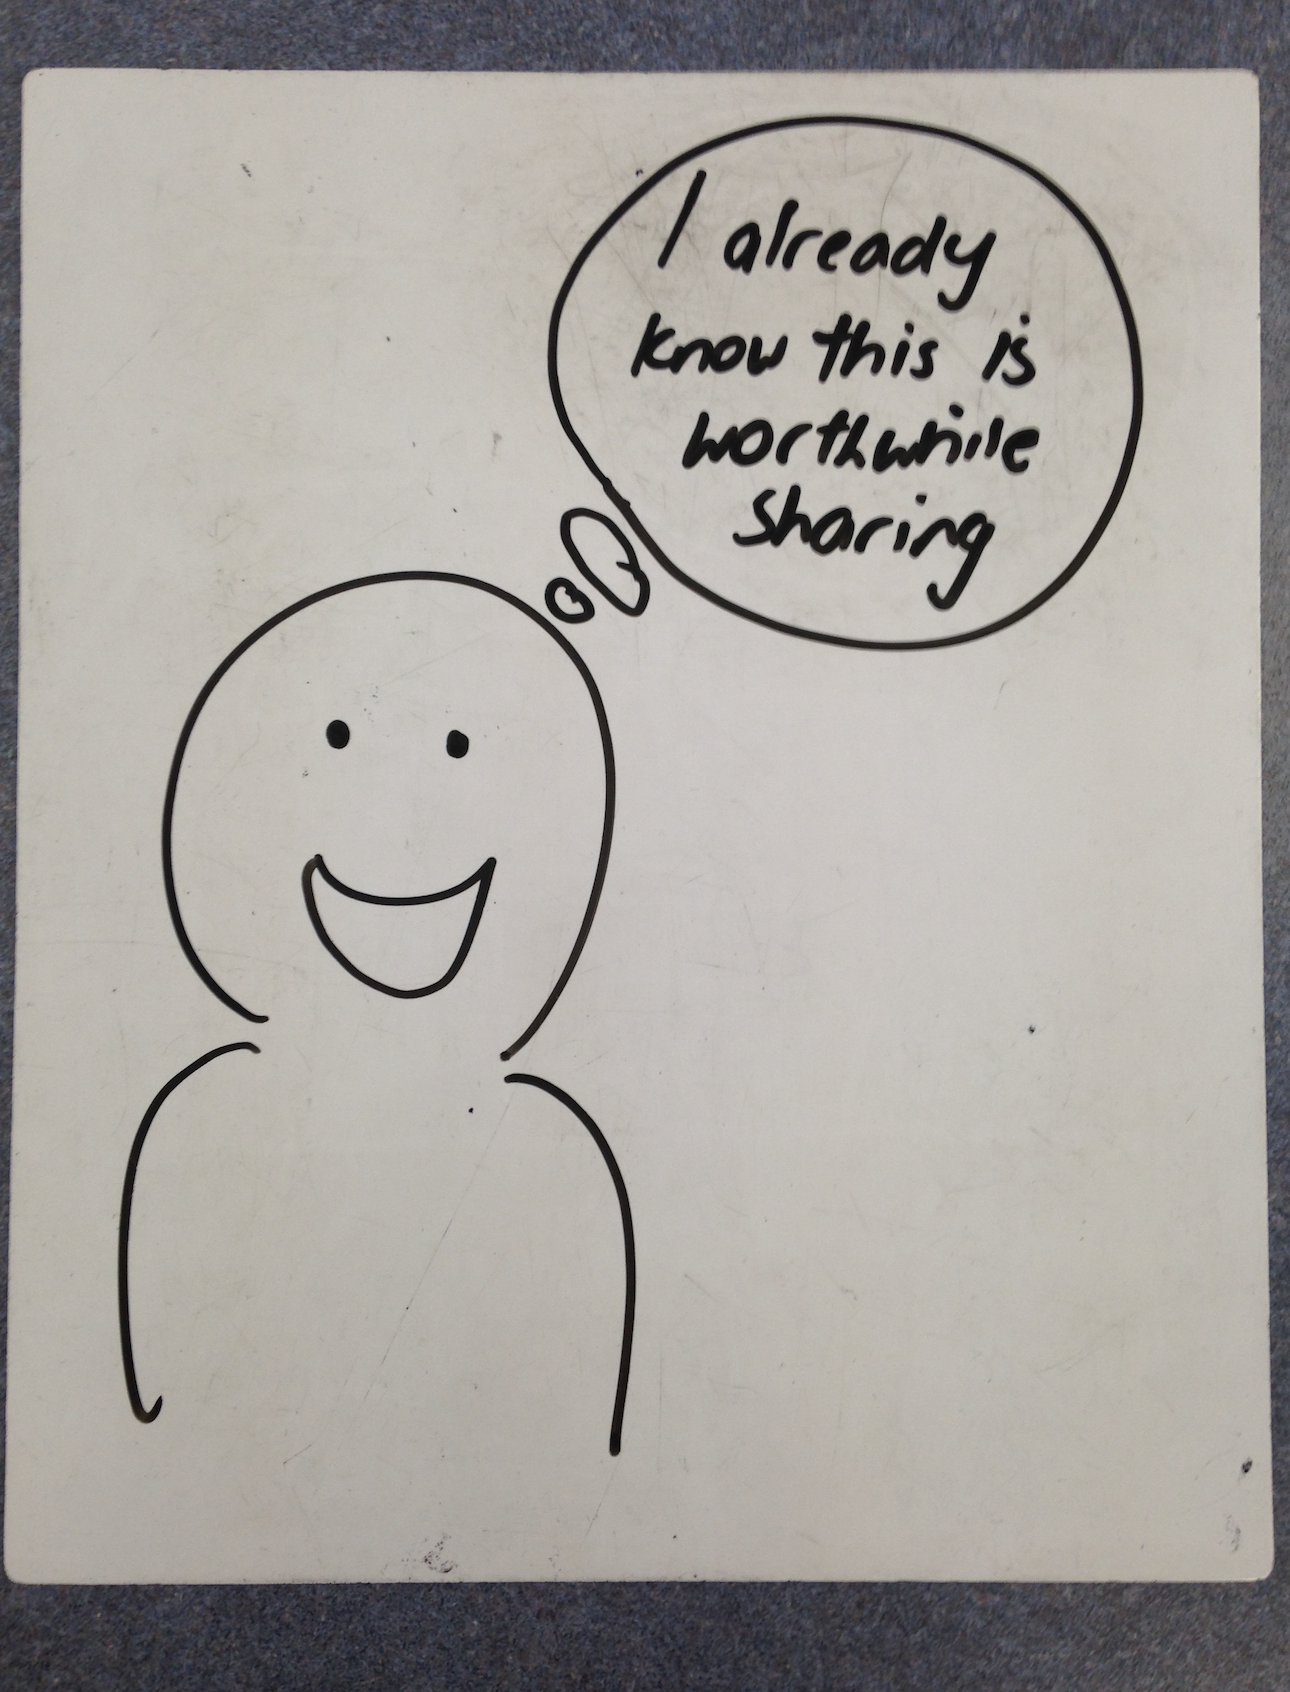 I already
know this is
worthwhile
sharing